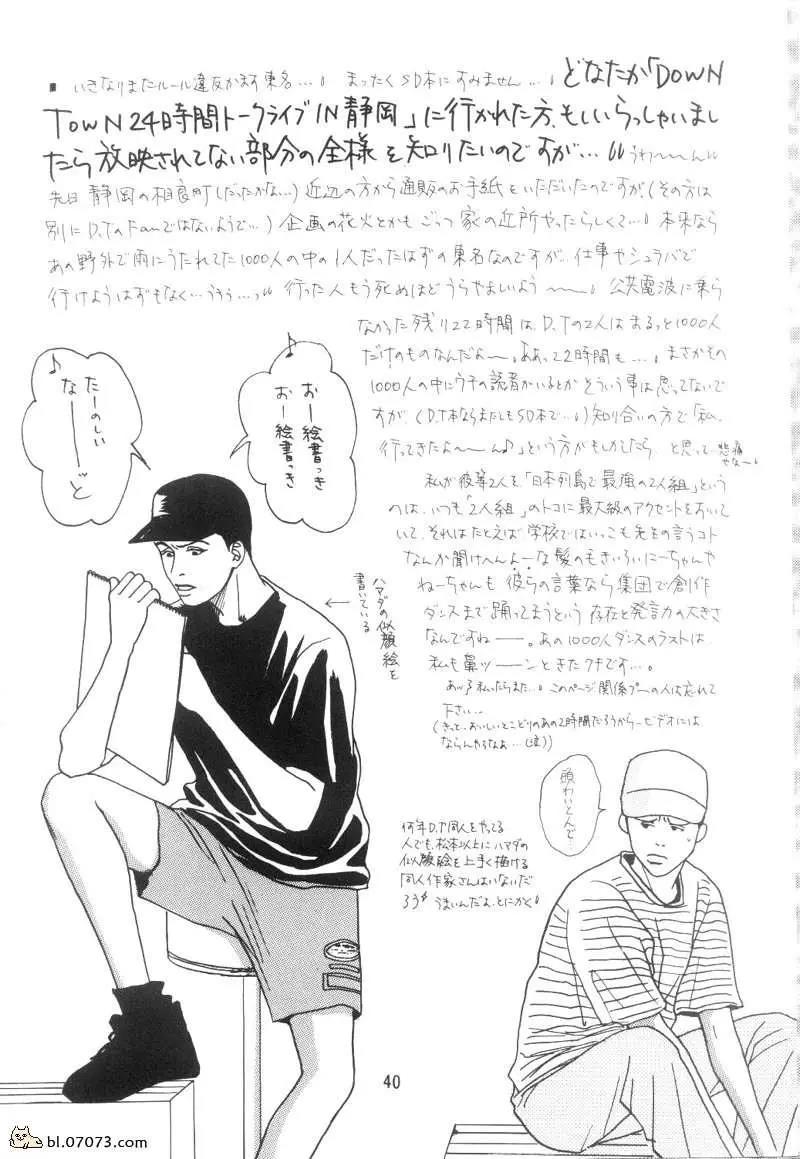 ■ いきなりまたルール違反かます東名…。まったくSD本にすみません…。どなたか「DOWN
TOWN 24時間トークライブ IN 静岡」に行かれた方、もしいらっしゃいまし
たら放映されてない部分の全様を知りたいのですが…
先日静岡の相良町(だったかな…)近辺の方から通販のお手紙をいただいたのですが、(その方は
別にD.TのFanではないようで…)企画の花火とかもごっつ家の近所やったらしくて…。本来なら
あの野外で雨にうたれてた1000人の中の1人だったはずの東名なのですが…仕事やシュラバで
行けようはずもなく…うぅぅ…っ 行った人もう死ぬほどうらやましいよう〜〜。公共電波に乗ら
なかった残り22時間は、D.Tの2人はまるっと1000人
だけのものなんだよ〜。ああっ22時間も…。まさかその
1000人の中にウチの読者がいるとかそういう事は思ってないで
すが(D.T本ならまだしもSD本で…。)知り合いの方で「私、
行ってきたよ〜ん♪」という方がもしかしてたら…と思って…悲痛
やな〜。
私が彼等2人を「日本列島で最強の2人組」という
のは、いつも「2人組」のトコに最大級のアクセントをおいて
いて、それはたとえば学校ではいっこも先生の言うコト
なんか聞けへんよーな髪のもきいろいにーちゃんや
ねーちゃんも彼らの言葉なら集団で創作
ダンスまで踊ってまうという存在と発言力の大きさ
なんですね——。あの1000人ダンスのラストは、
私も鼻ツ——ンときたクチです…。
あッ?私ったらまた…。このページ関係プーの人は忘れて
下さい…
(きっと、おいしいとこどりのあの2時間だろうから…ビデオには
ならんやろなぁ…(泣))
♪
たーのしい
なーーっと
♪
おー絵書っき
おー絵書っき
←ハマダの似顔絵を
書いている
頭わいとんで…
何年D.T同人をやってる
人でも、松本以上にハマダの
似顔絵を上手く描ける
同人作家さんはいないだ
ろう うまいんだよ、とにかく。
40
bl.07073.com